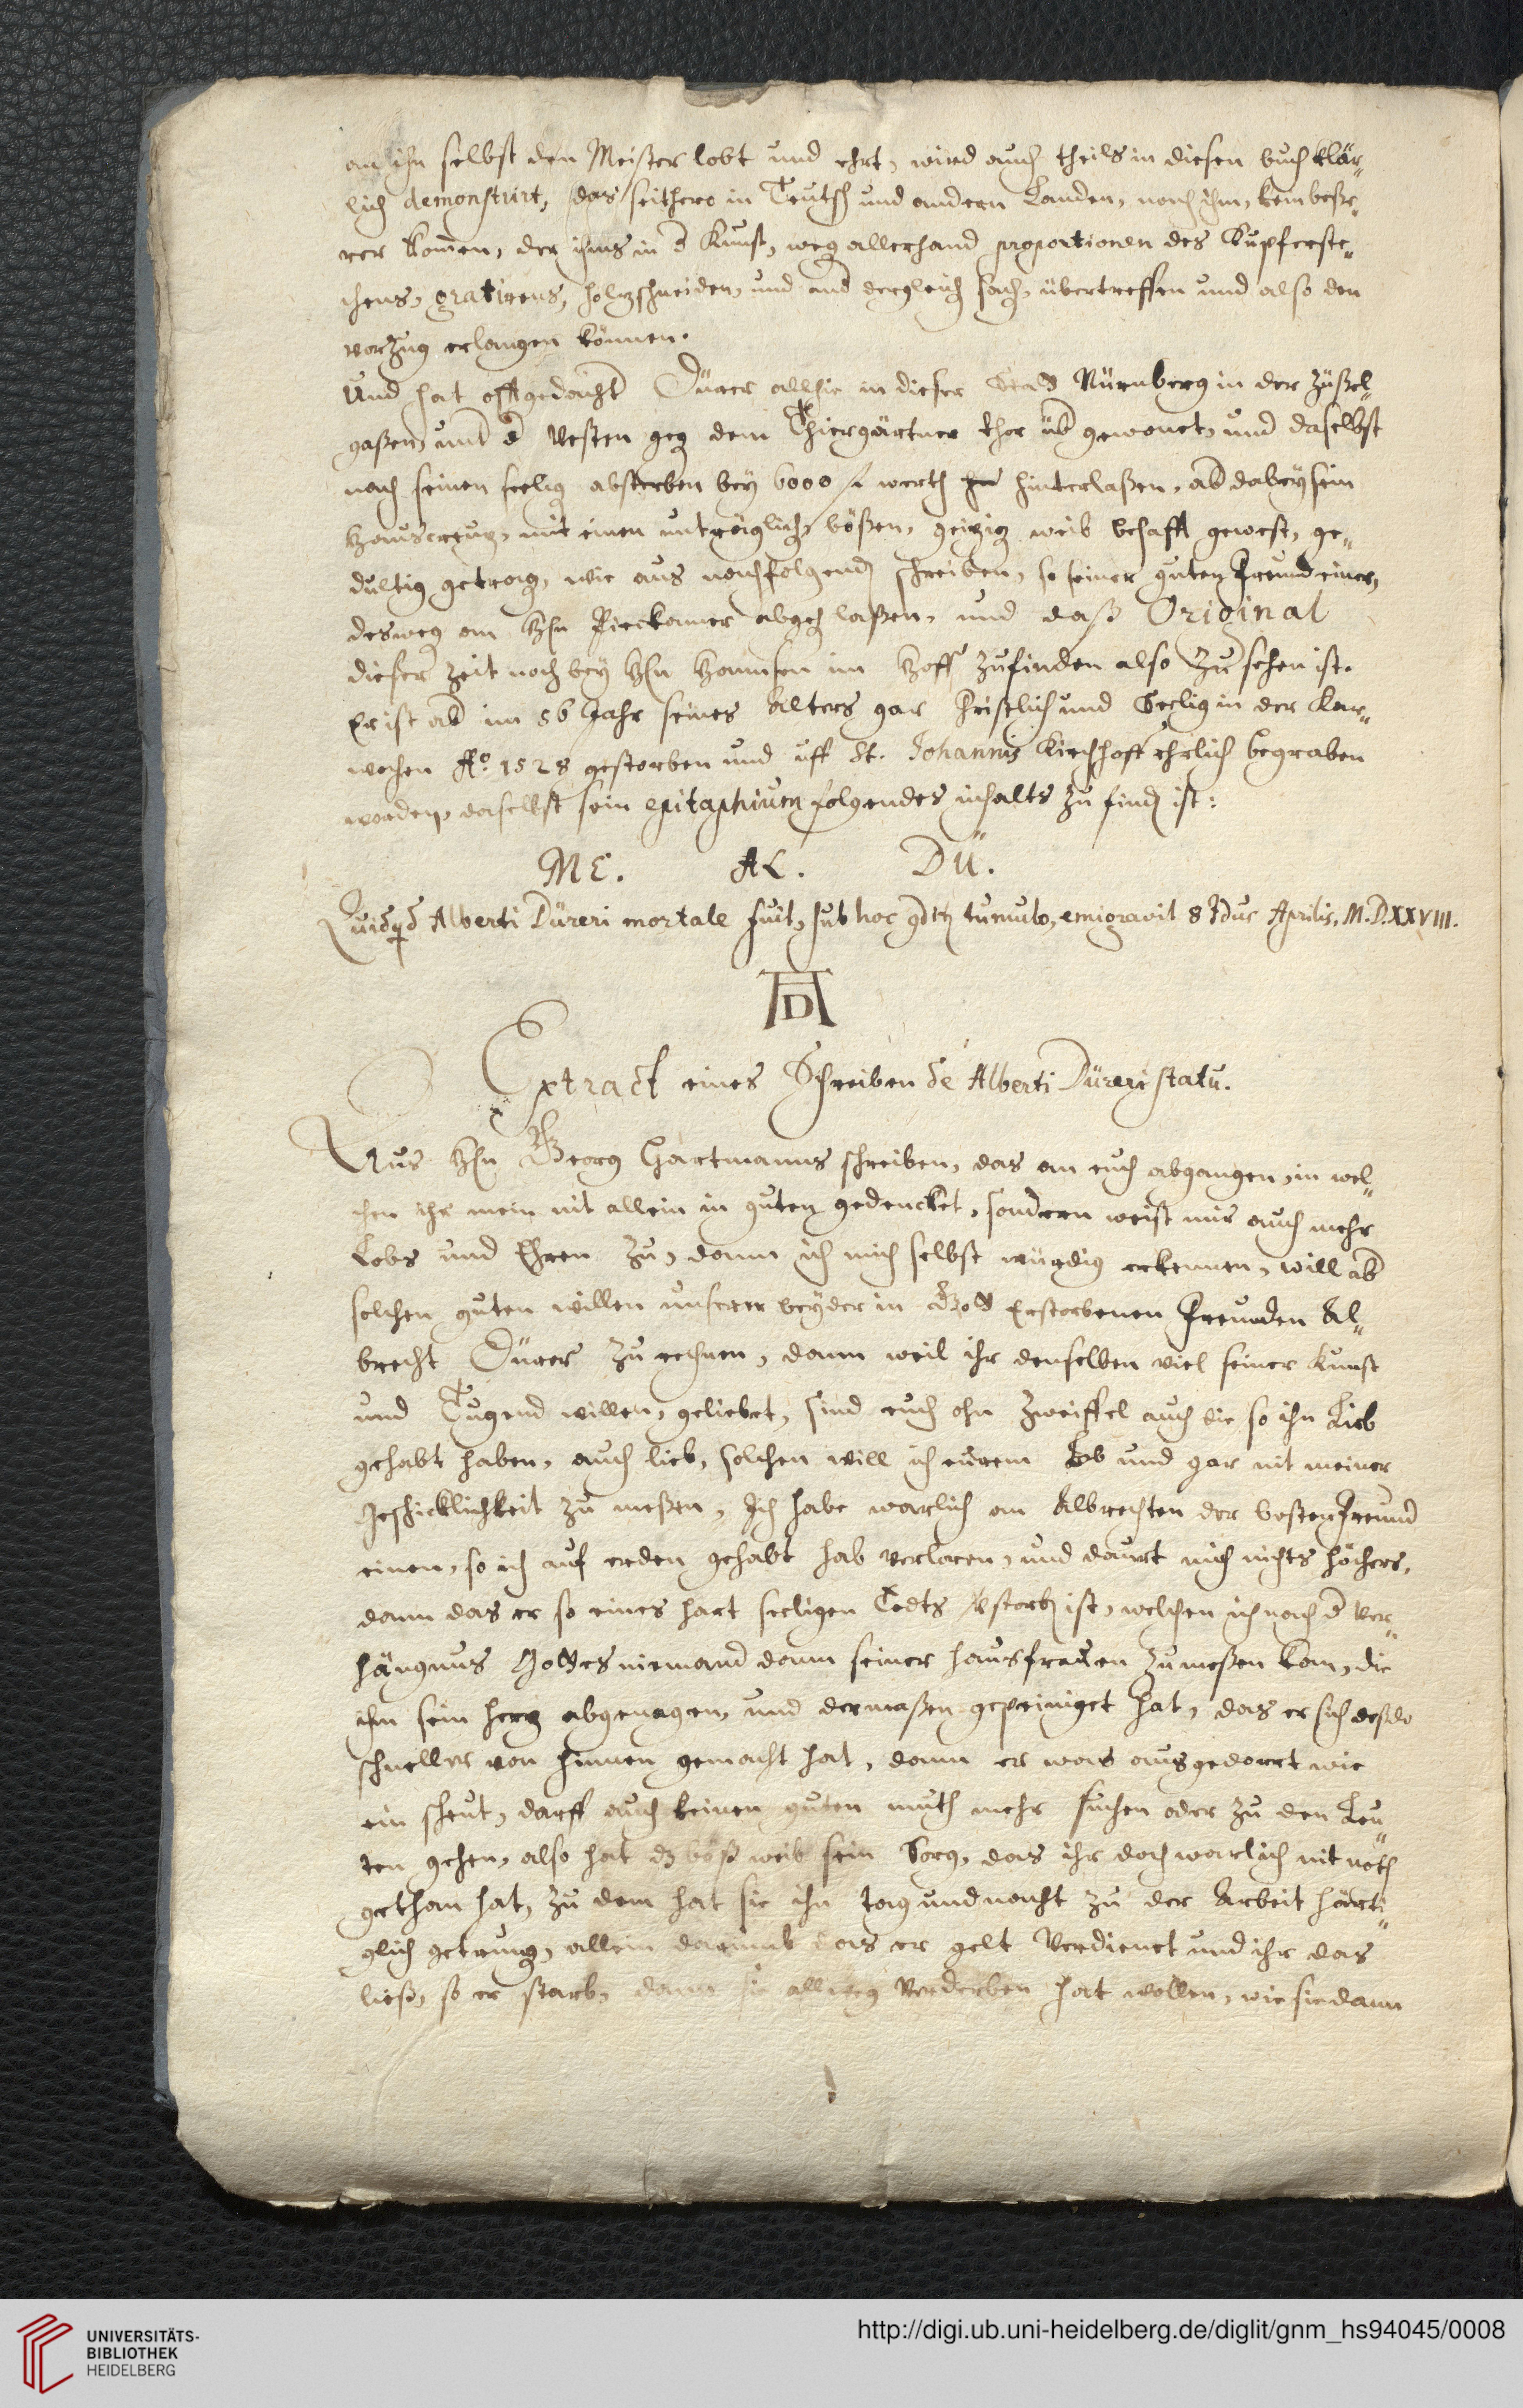 an ihn selbst den Meister lobt und ehrt, wird auch theils in diesen buch klär„
lich demonstrirt, das seithero in Teutsch und andern Landen, noch ihm, kein beße„
rer kom̄en, der ihms in d Kunst, weg allerhand proportionen des Kupferste„
chens, gratirens, holzschneiden, und and dergleich sach, übertreffen und also den
vorzug erlangen können.
Und hat offtgedacht Dürer allhie in dieser Stad Nürnberg in der Züßel„
gaßen, unt d Vesten geg dem Thiergärtner thor üb gewonet, und daselbst
nach seinen seelig absterben bey 6000 f werth hinterlaßen, ab dabey sein
Hauscreuz, mit einen unträglich, bößen, geizig weib behafft gewest, ge„
dultig getrag, wie aus nachfolgend schreiben, so seiner guten freund einer,
desweg am Hrn Pirckamer abgeh laßen, und daß Original
dieser Zeit noch bey Hrn Hannsen im Hoff zufinden also Zu sehen ist.
Er ist ab im 56 Jahr seines Alters gar Christlich und Seelig in der Kar„
wochen Aō. 1528 gestorben und uff St. Johannis Kirchhoff ehrlich begraben
worden, daselbst sein epitaphium folgendes inhalts zu find ist:
ME. AL. DÜ.
Quidqd Alberti Düreri mortale fuit, sub hoc gdtr tumulo, emigravit 8 Idus Aprilis. M.D.XXVIII.
AD
Extract eines Schreiben de Alberti Düreri statu.
Aus Hrn Georg Hartmanns schreiben, das an euch abgangen, in wel„
chen ihr mein nit allein in guten gedencket, sondern weist mir auch mehr
Lobs und Ehren zu, dann ich mich selbst würdig erkennen, will ab
solchen guten willen unserer beyder in Gott Erstorbenen Freunden Al„
brecht Dürer zu rechnen, dann weil ihr denselben viel seiner Kunst
und Tugend willen, geliebet, sind euch ohn Zweiffel auch die so ihn Lieb
gehabt haben, auch lieb, solchen will ich eurem Lob und gar nit meiner
Geschicklichkeit zu meßen, Ich habe warlich an Albrechten der besten freund
einen, so ich auf erden gehabt hab verloren, und daurt mich nichts höchers,
dann das er so eines hart seeligen Todts Vstorb ist, welchen ich nach d Ver„
hängnus Gottes niemand dann seiner hausfrauen zumeßen kan, die
ihm sein herz abgenagen, und dermaßen gepeiniget hat, das er sich desdo
schneller von hinnen gemacht hat, dann er was ausgedorrt wie
ein scheut, darff auch keinen guten muth mehr suchen oder zu den Leu„
ten gehen, also hat dz böß weib sein Sorg, das ihr doch warlich nit noth
gethan hat, zu dem hat sie ihn tag und nacht zu der Arbeit härti„
glich getrung, allein darumb das er gelt verdienet und ihr das
ließ, so er starb, dann sie allweg verderben hat wollen, wie sie dann
UNIVERSITÄTS-
BIBLIOTHEK
HEIDELBERG
http://digi.ub.uni-heidelberg.de/diglit/gnm_hs94045/0008